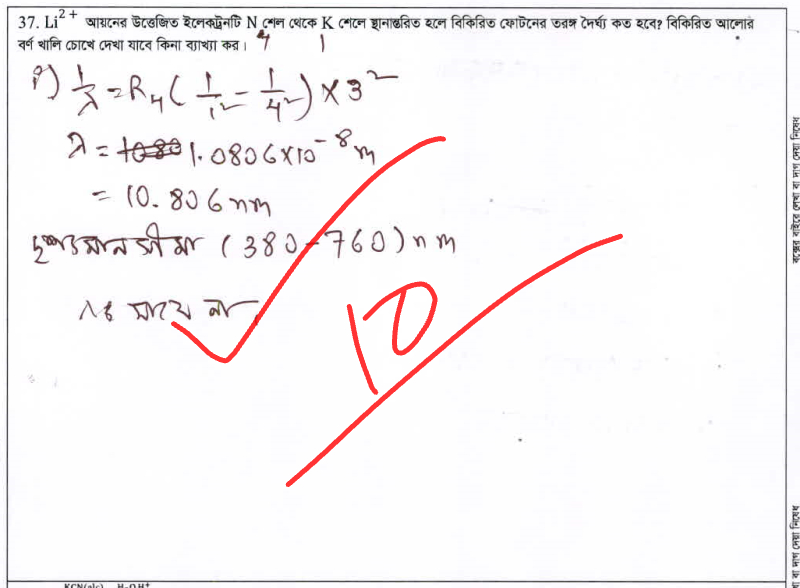 37. Li²⁺ আয়নের উত্তেজিত ইলেকট্রনটি N শেল থেকে K শেলে স্থানান্তরিত হলে বিকিরিত ফোটনের তরঙ্গ দৈর্ঘ্য কত হবে? বিকিরিত আলোর
বর্ণ খালি চোখে দেখা যাবে কিনা ব্যাখ্যা কর। 4 1
1/λ = R_H (1/1² - 1/4²) × 3²
λ = 1.0806×10⁻⁸ m
= 10.806 nm
দৃশ্যমান সীমা (380-760) nm
যাবে না
10
বক্সের বাইরে লেখা বা দাগ দেয়া নিষেধ
বা দাগ দেয়া নিষেধ
KCN(alc) H₃OH⁺